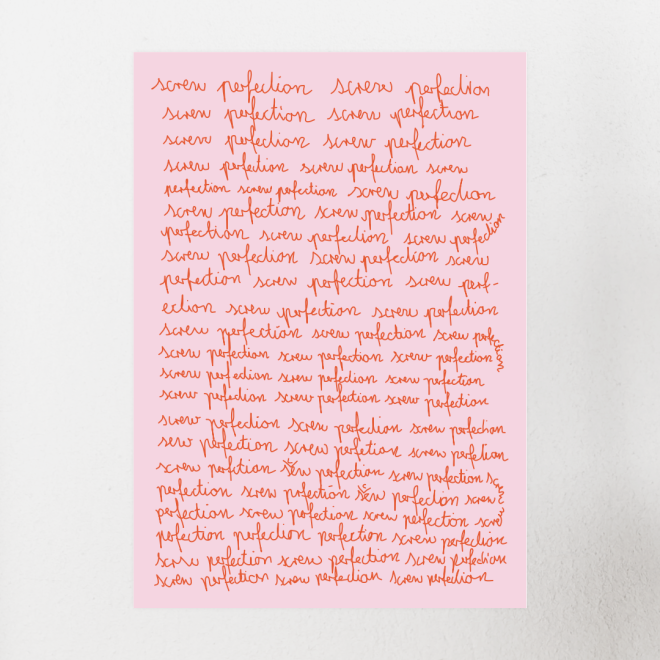 screw perfection screw perfection
screw perfection screw perfection
screw perfection screw perfection
screw perfection screw perfection screw
perfection screw perfection screw perfection
screw perfection screw perfection screw
perfection screw perfection screw perfection
screw perfection screw perfection screw
perfection screw perfection screw perf-
ection screw perfection screw perfection
screw perfection screw perfection screw perfection
screw perfection screw perfection screw perfection
screw perfection screw perfection screw perfection
screw perfection screw perfection screw perfection
screw perfection screw perfection screw perfection
serw perfection screw perfetion screw perfection
screw perfction screw perfection screw perfection screw
perfection screw prfection screw perfection screw
perfection screw perfection screw perfection screw
perfection perfection perfection screw perfection
screw perfection screw perfection screw perfection
screw perfection screw perfection screw perfection